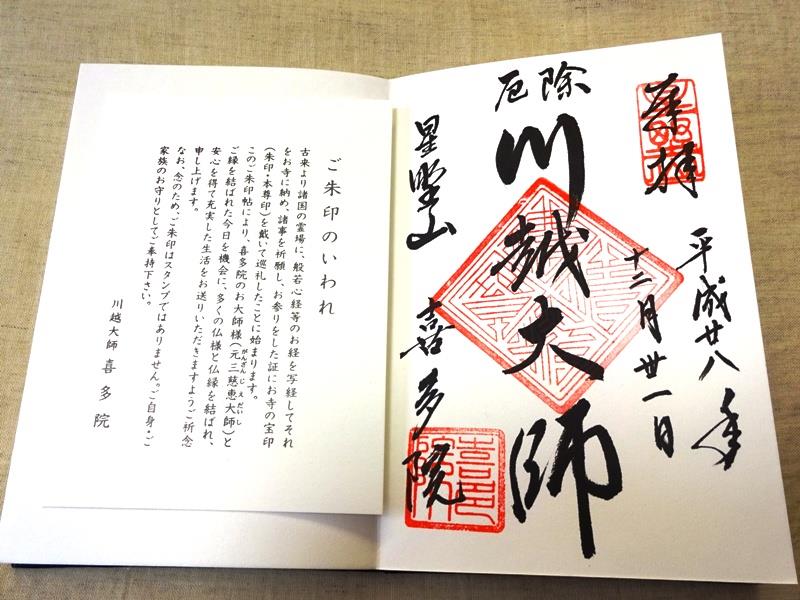 奉拝
平成廿八年
十二月卅一日
厄除
川越大師
星野山
喜多院
ご朱印のいわれ
古来より諸国の霊場に、般若心経等のお経を写経してそれ
をお寺に納め、諸事を祈願し、お参りをした証にお寺の宝印
(朱印・本尊印)を戴いて巡礼したことに始まります。
このご朱印帖により、喜多院のお大師様(元三慈恵大師)と
がんざんじえだいし
ご縁を結ばれた今日を機会に、多くの仏様と仏縁を結ばれ、
安心を得て充実した生活をお送りいただきますようご祈念
申し上げます。
なお、念のため、ご朱印はスタンプではありません。ご自身・ご
家族のお守りとしてご奉持下さい。
川越大師 喜多院